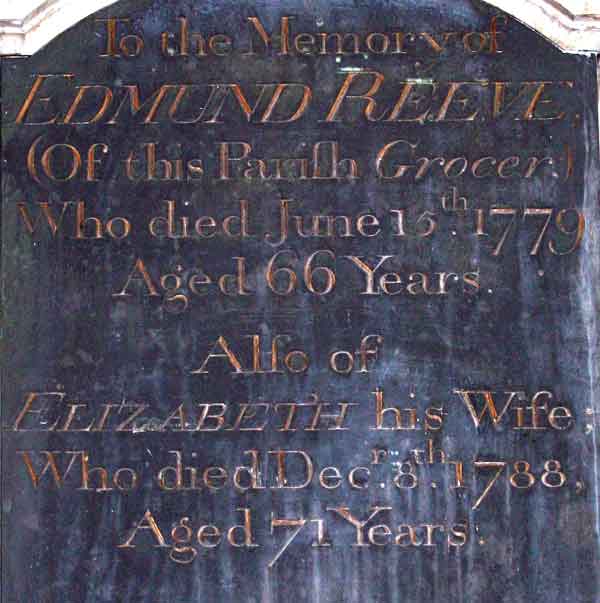 To the Memory of
EDMUND REEVE,
(Of this Pariſh Grocer)
Who died June 15th. 1779
Aged 66 Years.
Alſo of
ELIZABETH his Wife;
Who died Decr. 8th. 1788,
Aged 71 Years.